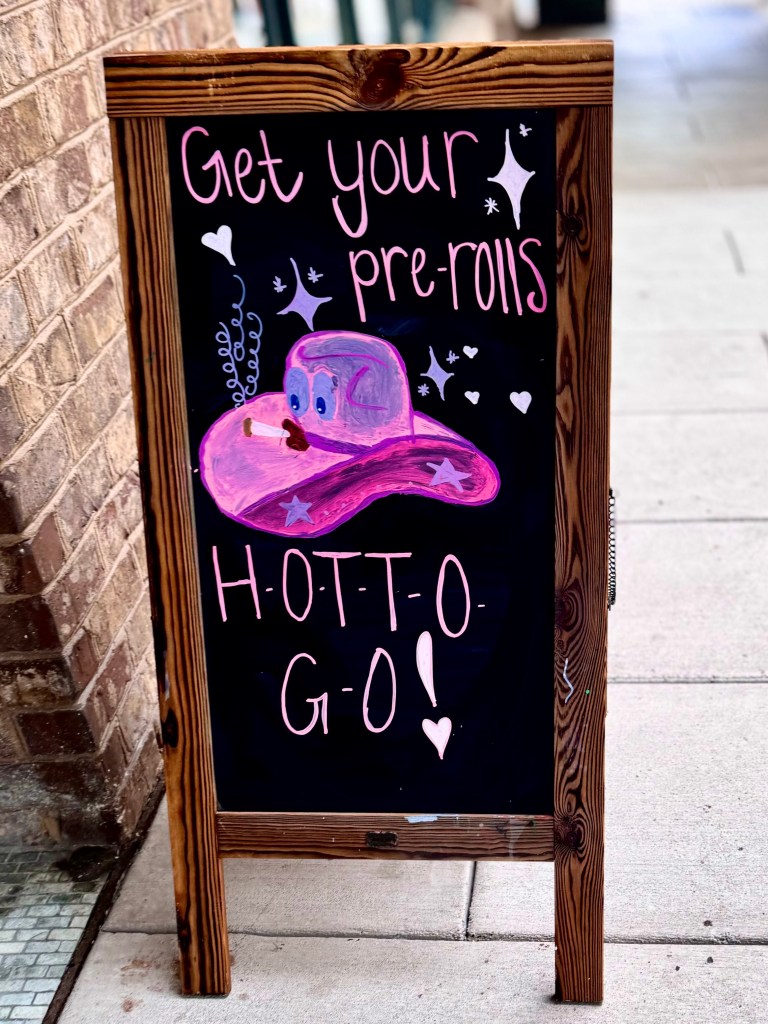 Get your
pre-rolls
H-O-T-T-O-
G-O!